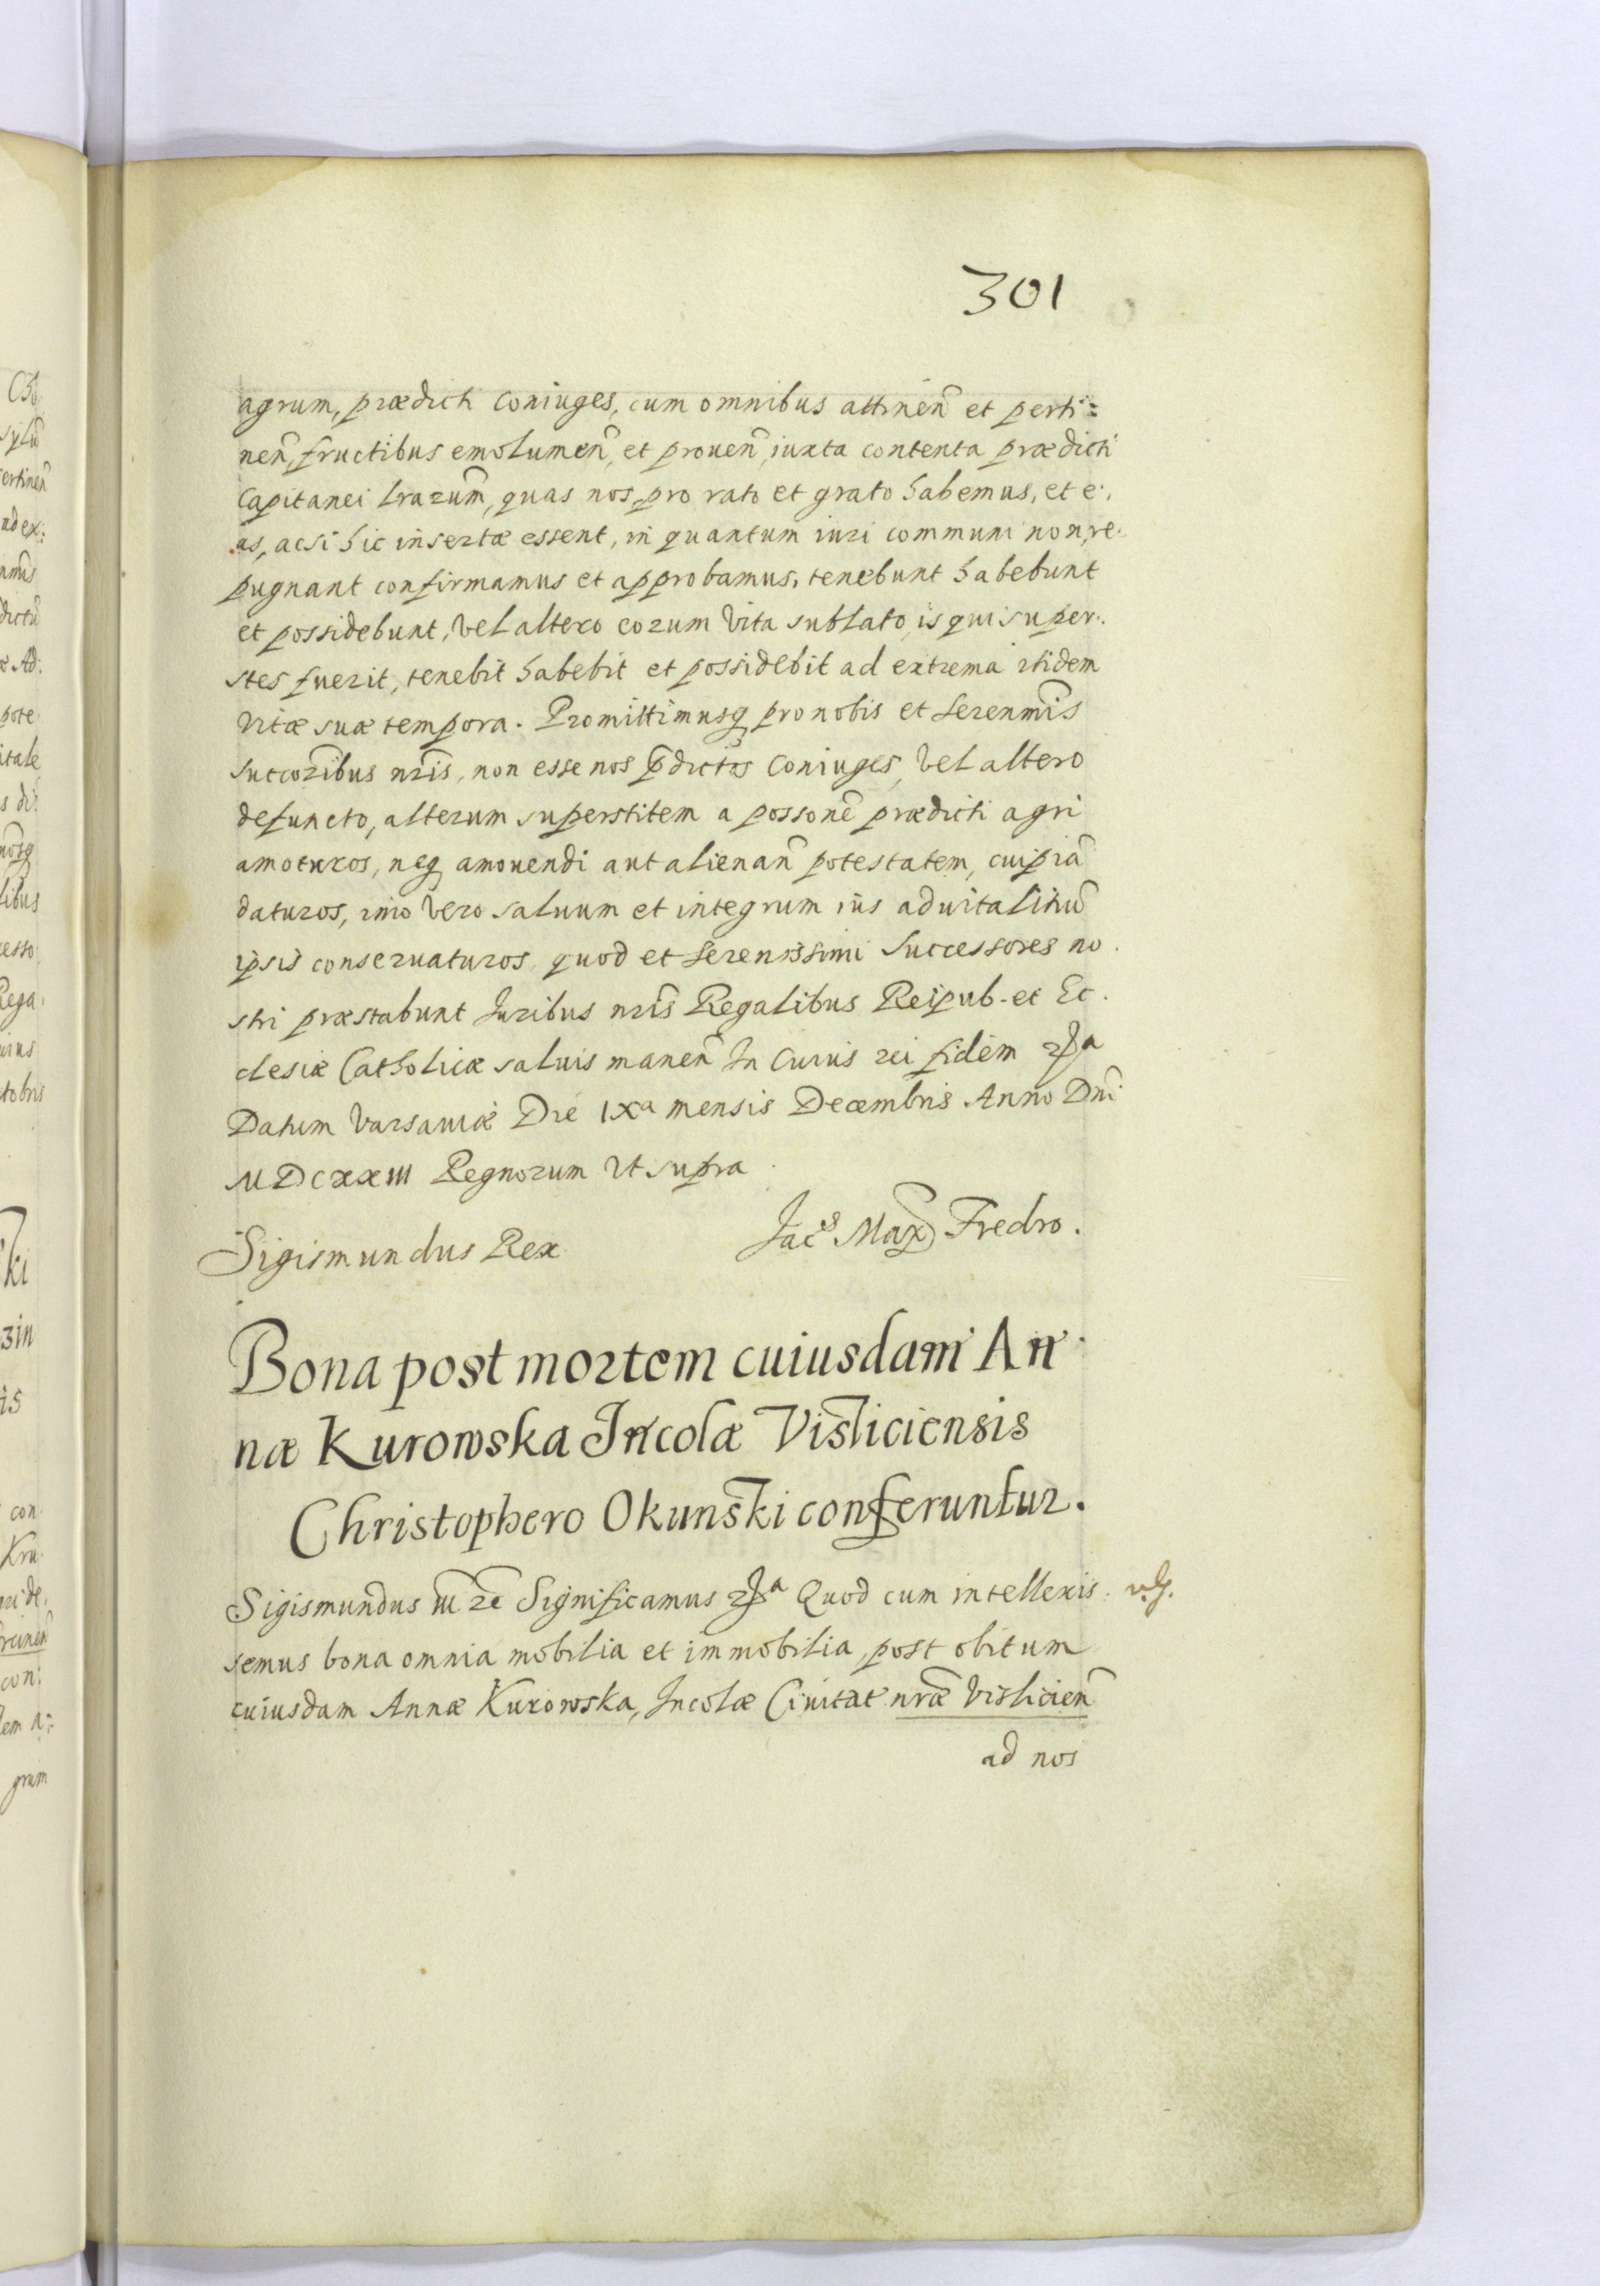 301
agrum, prædicti coniuges, cum omnibus attinen̄ et perti=
nen̄, fructibus emolumen̄, et prouen̄, iuxta contenta prædicti
Capitanei lrarum̄, quas nos pro rato et grato habemus, et e.
as, acsi hic insertæ essent, in quantum iuri communi non re.
pugnant confirmamus et approbamus, tenebunt habebunt
et possidebunt, vel altero eorum vita sublato, is qui super.
stes fuerit, tenebit habebit et possidebit ad extrema itidem
vitæ suæ tempora. Promittimusq pro nobis et Serenm̄is
succor̄ibus nr̄is, non esse nos p̄dictos coniuges, vel altero
defuncto, alterum superstitem a posson̄e prædicti agri
amoturos, neq amouendi aut alienan̄ potestatem, cuipiā
daturos, imo vero saluum et integrum ius aduitalitiū
ipsis conseruaturos, quod et Serenissimi Successores no.
stri præstabunt Iuribus nr̄is Regalibus Reipub. et Ec.
clesiæ Catholicæ saluis manen̄ In Cuius rei fidem
Datum Varsauiæ Die IXa mensis Decembris Anno Dn̄i
MDCXXIII Regnorum ut supra
Sigismundus Rex Jacs Max̄ Fredro.
Bona post mortem cuiusdam An
næ Kurowska Incolæ Visliciensis
Christophero Okunski conferuntur.
Sigismundus III Significamus Quod cum intellexis.
semus bona omnia mobilia et immobilia, post obitum
cuiusdam Annæ Kurowska, Incolæ Ciuitat nr̄æ Vislicien̄
ad nos